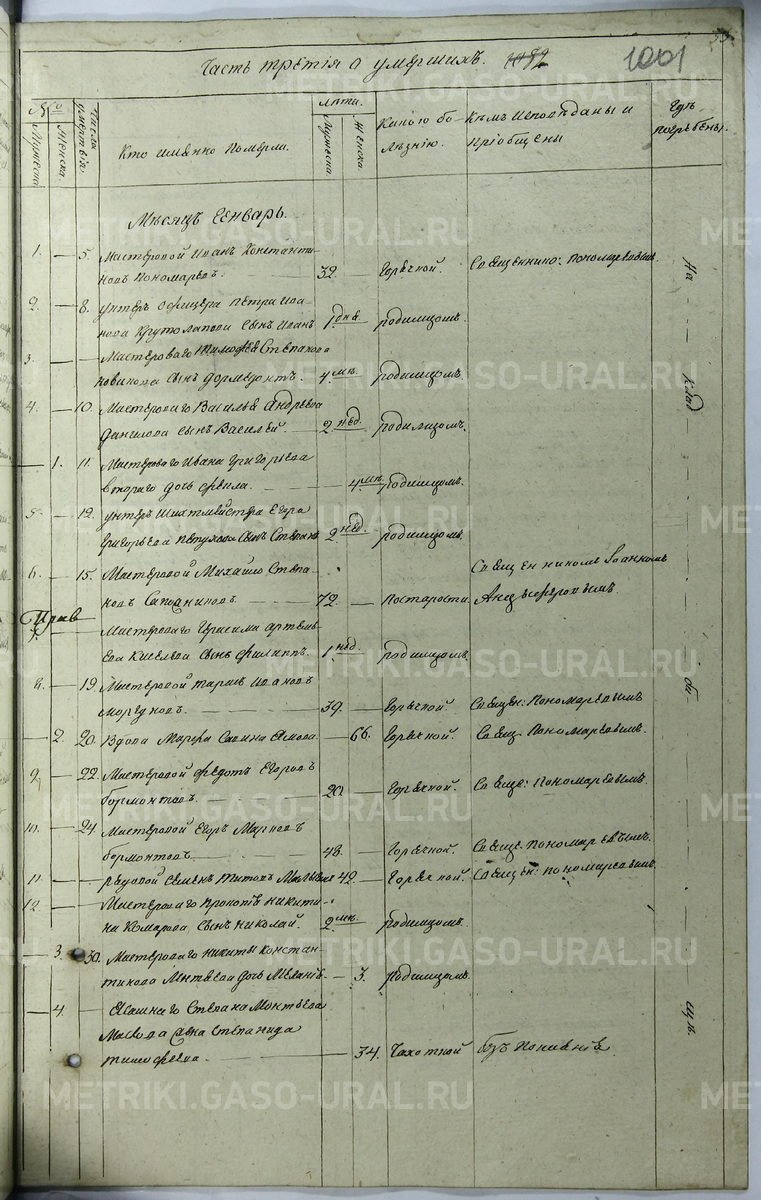 Часть третія о умершихъ.
1001
№
Мужеска
Женска.
Числа умертвія.
Кто именно померли.
лѣта.
Мужеска
Женска.
Какою бо-
лѣзнію.
Кѣмъ исповѣданы и
пріобщены
Гдѣ
погребены.
Мѣсяцъ Генварь.
1. — 5. Мастеровой Иванъ Константи-
новъ Пономаревъ. 32. — Горячкой. Священнико: Пономаревымъ.
2. — 8. Унтеръ офицера Петра Ива-
нова Крутолапова сынъ Иванъ 1. дня родимцомъ.
3. — Мастероваго Тимофея Степанова
сынъ Дормедонтъ. 4. мѣ. родимцомъ.
4. — 10. Мастероваго Василья Андреева
Данилова сынъ Василей. 2 нед. родимцомъ.
— 1. 11. Мастероваго Ивана Григорьева
втораго дочь Фекла. — 4. мѣ. родимцомъ.
5. — 12. Унтеръ шихтмейстера Егора
Григорьева Петухова сынъ Степанъ 2 нед. родимцомъ.
6. — 15. Мастеровой Михайло Степа-
новъ 72. — Постарости. Священникомъ Іоанномъ
7. — Мастероваго Герасима Артемь-
ева Киселева сынъ Филиппъ. 1. нед. родимцомъ.
8. — 19. Мастеровой Иванов
39. — Горячкой Священ: Пономаревымъ
— 2. 20. Вдова Марфа Савина — 66. Горячкой. Свящ. Пономаревымъ.
9. — 22. Мастеровой Федотъ Егоровъ
Бормонтовъ. 20. Горячкой. Священ: Пономаревымъ
10. — 24. Мастеровой Егоръ Марковъ
Бормонтовъ. 48. — Горячкой. Священ. Пономаревымъ.
11. — рядовой Семенъ Титовъ 42. — Горячкой. Священ: Пономаревымъ
12. — Мастероваго Прокопія Никити-
на Комарова сынъ Николай. 2. мѣ. родимцомъ.
— 3. 30. Мастероваго Никиты Констан-
тинова дочь Меланія. — 3. родимцомъ.
— 4. Ясашнаго Степана
жена Степанида
Тимофеева. — 34. Чахоткой безъ покаянія.
На клад би щѣ.
METRIKI.GASO-URAL.RU